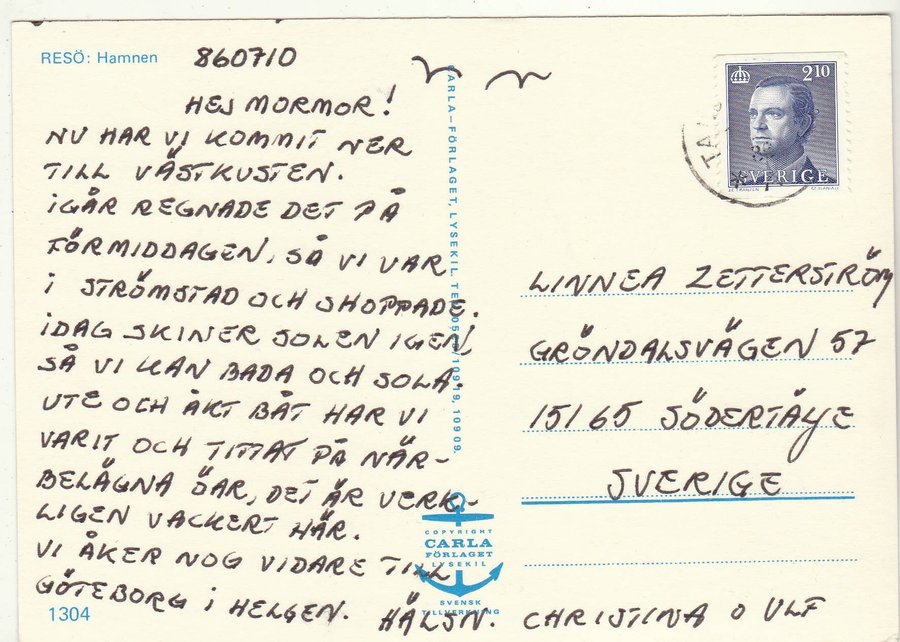 RESÖ: Hamnen
860710
HEJ MORMOR!
NU HAR VI KOMMIT NER
TILL VÄSTKUSTEN.
IGÅR REGNADE DET PÅ
FÖRMIDDAGEN, SÅ VI VAR
I STRÖMSTAD OCH SHOPPADE.
IDAG SKINER SOLEN IGEN
SÅ VI KAN BADA OCH SOLA.
UTE OCH ÅKT BÅT HAR VI
VARIT OCH TITTAT PÅ NÄR-
BELÄGNA ÖAR, DET ÄR VERK-
LIGEN VACKERT HÄR.
VI ÅKER NOG VIDARE TILL
GÖTEBORG I HELGEN. HÄLSN. CHRISTINA O ULF
1304
CARLA-FÖRLAGET, LYSEKIL. TEL. 109 19, 109 09.
COPYRIGHT
CARLA
FÖRLAGET
LYSEKIL
SVENSK
TILLVERKNING
2.10
SVERIGE
LINNEA ZETTERSTRÖM
GRÖNDALSVÄGEN 57
151 65 SÖDERTÄLJE
SVERIGE